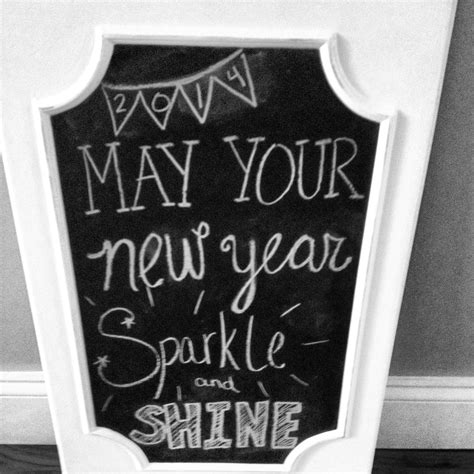 2014
MAY YOUR
new year
Sparkle
and
SHINE